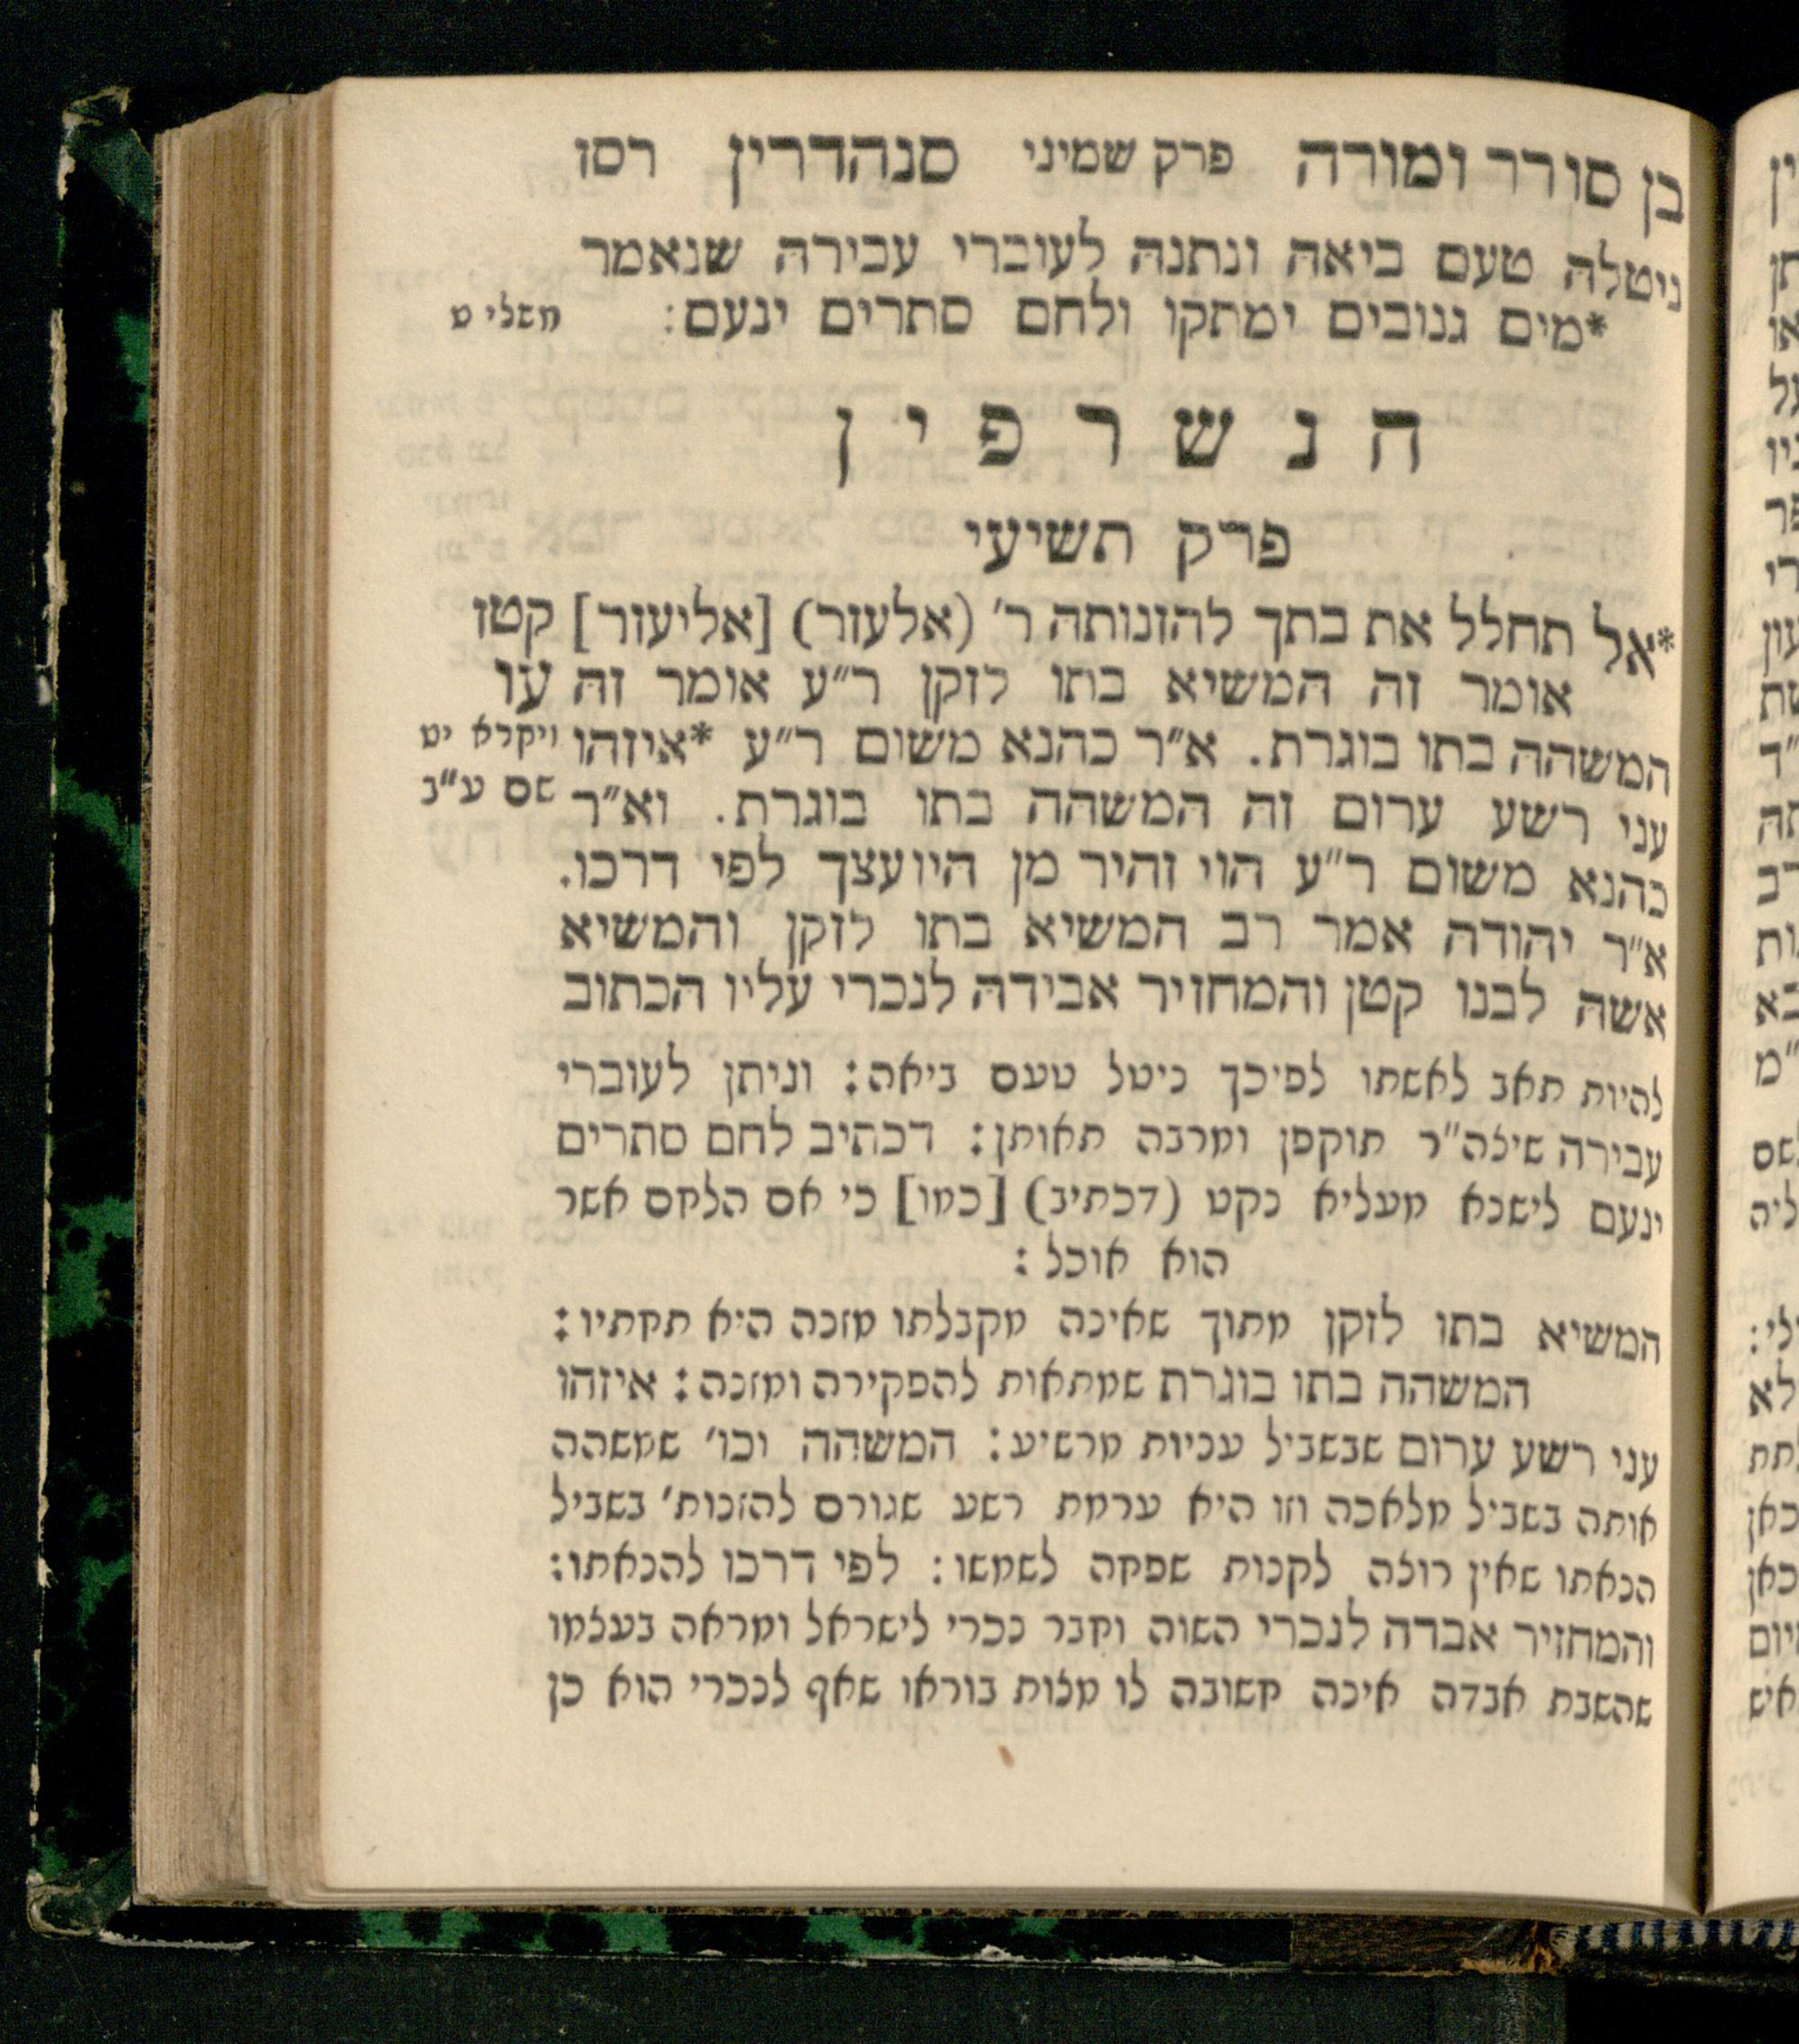 בן סורר ומורה פרק שמיני סנהדרין רסז
ניטלה טעם ביאה ונתנה לעוברי עבירה שנאמר
*מים גנובים ימתקו ולחם סתרים ינעם:
משלי ט
הנשרפין
פרק תשיעי
*אל תחלל את בתך להזנותה ר׳ (אלעזר) [אליעזר] קטז
אומר זה המשיא בתו לזקן ר״ע אומר זה עו
המשהה בתו בוגרת. א״ר כהנא משום ר״ע *איזהו ויקרא יט
עני רשע ערום זה המשהה בתו בוגרת. וא״ר שם ע״ב
כהנא משום ר״ע הוי זהיר מן היועצך לפי דרכו.
א״ר יהודה אמר רב המשיא בתו לזקן והמשיא
אשה לבנו קטן והמחזיר אבידה לנכרי עליו הכתוב
להיות תאב לאשתו לפיכך ניטל טעם ביאה: וניתן לעוברי
עבירה שיצה״ר תוקפן ומרבה תאותן: דכתיב לחם סתרים
ינעם לישנא מעליא נקט (דכתיב) [כמו] כי אם הלחם אשר
הוא אוכל:
המשיא בתו לזקן מתוך שאינה מקבלתו מזנה היא תחתיו:
המשהה בתו בוגרת שמתאות להפקירה ומזנה: איזהו
עני רשע ערום שבשביל עניות מרשיע: המשהה וכו׳ שמשהה
אותה בשביל מלאכה וזו היא ערמת רשע שגורם להזנות׳ בשביל
הנאתו שאין רוצה לקנות שפחה לשמשו: לפי דרכו להנאתו:
והמחזיר אבדה לנכרי השוה וחבר נכרי לישראל ומראה בעצמו
שהשבת אבדה אינה חשובה לו מצות בוראו שאף לנכרי הוא כן